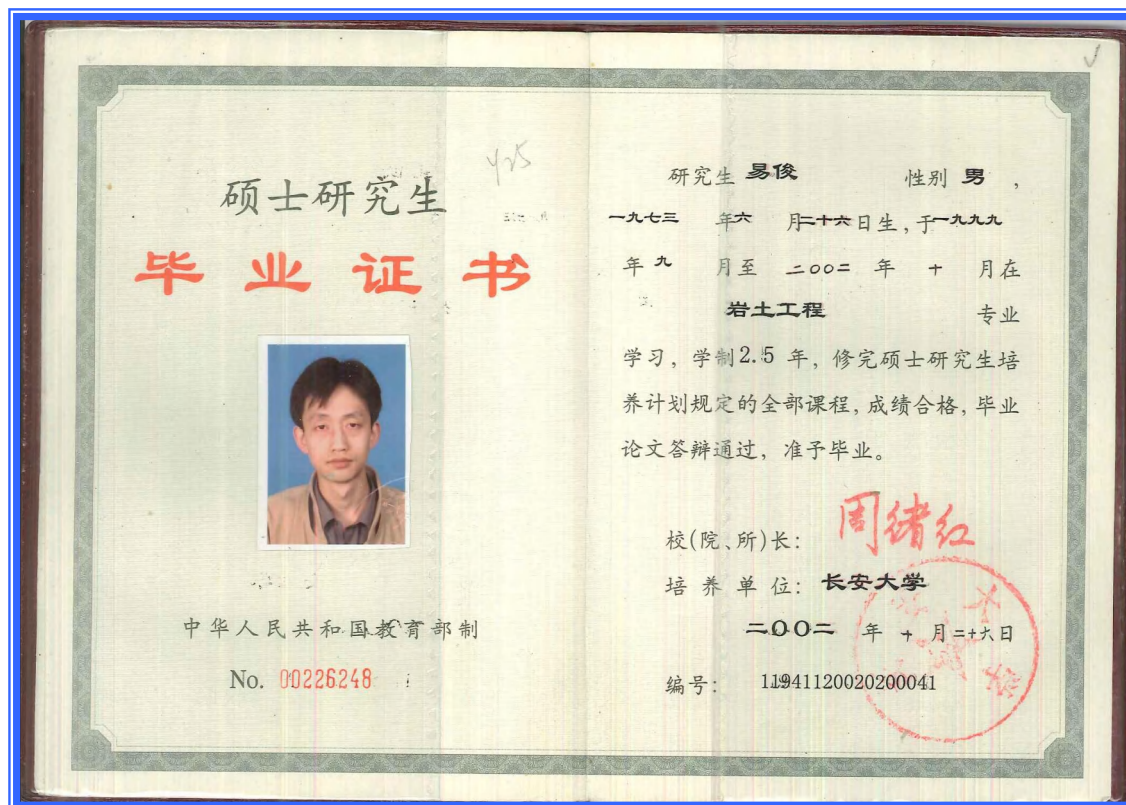 硕士研究生
毕业证书
中华人民共和国教育部制
No. 00226248
研究生 易俊 性别 男，
一九七三 年六 月二十六日生，于一九九九
年 九 月至 二〇〇二 年 十 月在
岩土工程 专业
学习，学制2.5 年，修完硕士研究生培
养计划规定的全部课程，成绩合格，毕业
论文答辩通过，准予毕业。
校(院、所)长： 周绪红
培 养 单 位： 长安大学
二〇〇二 年 十 月二十六日
编号： 11941120020200041